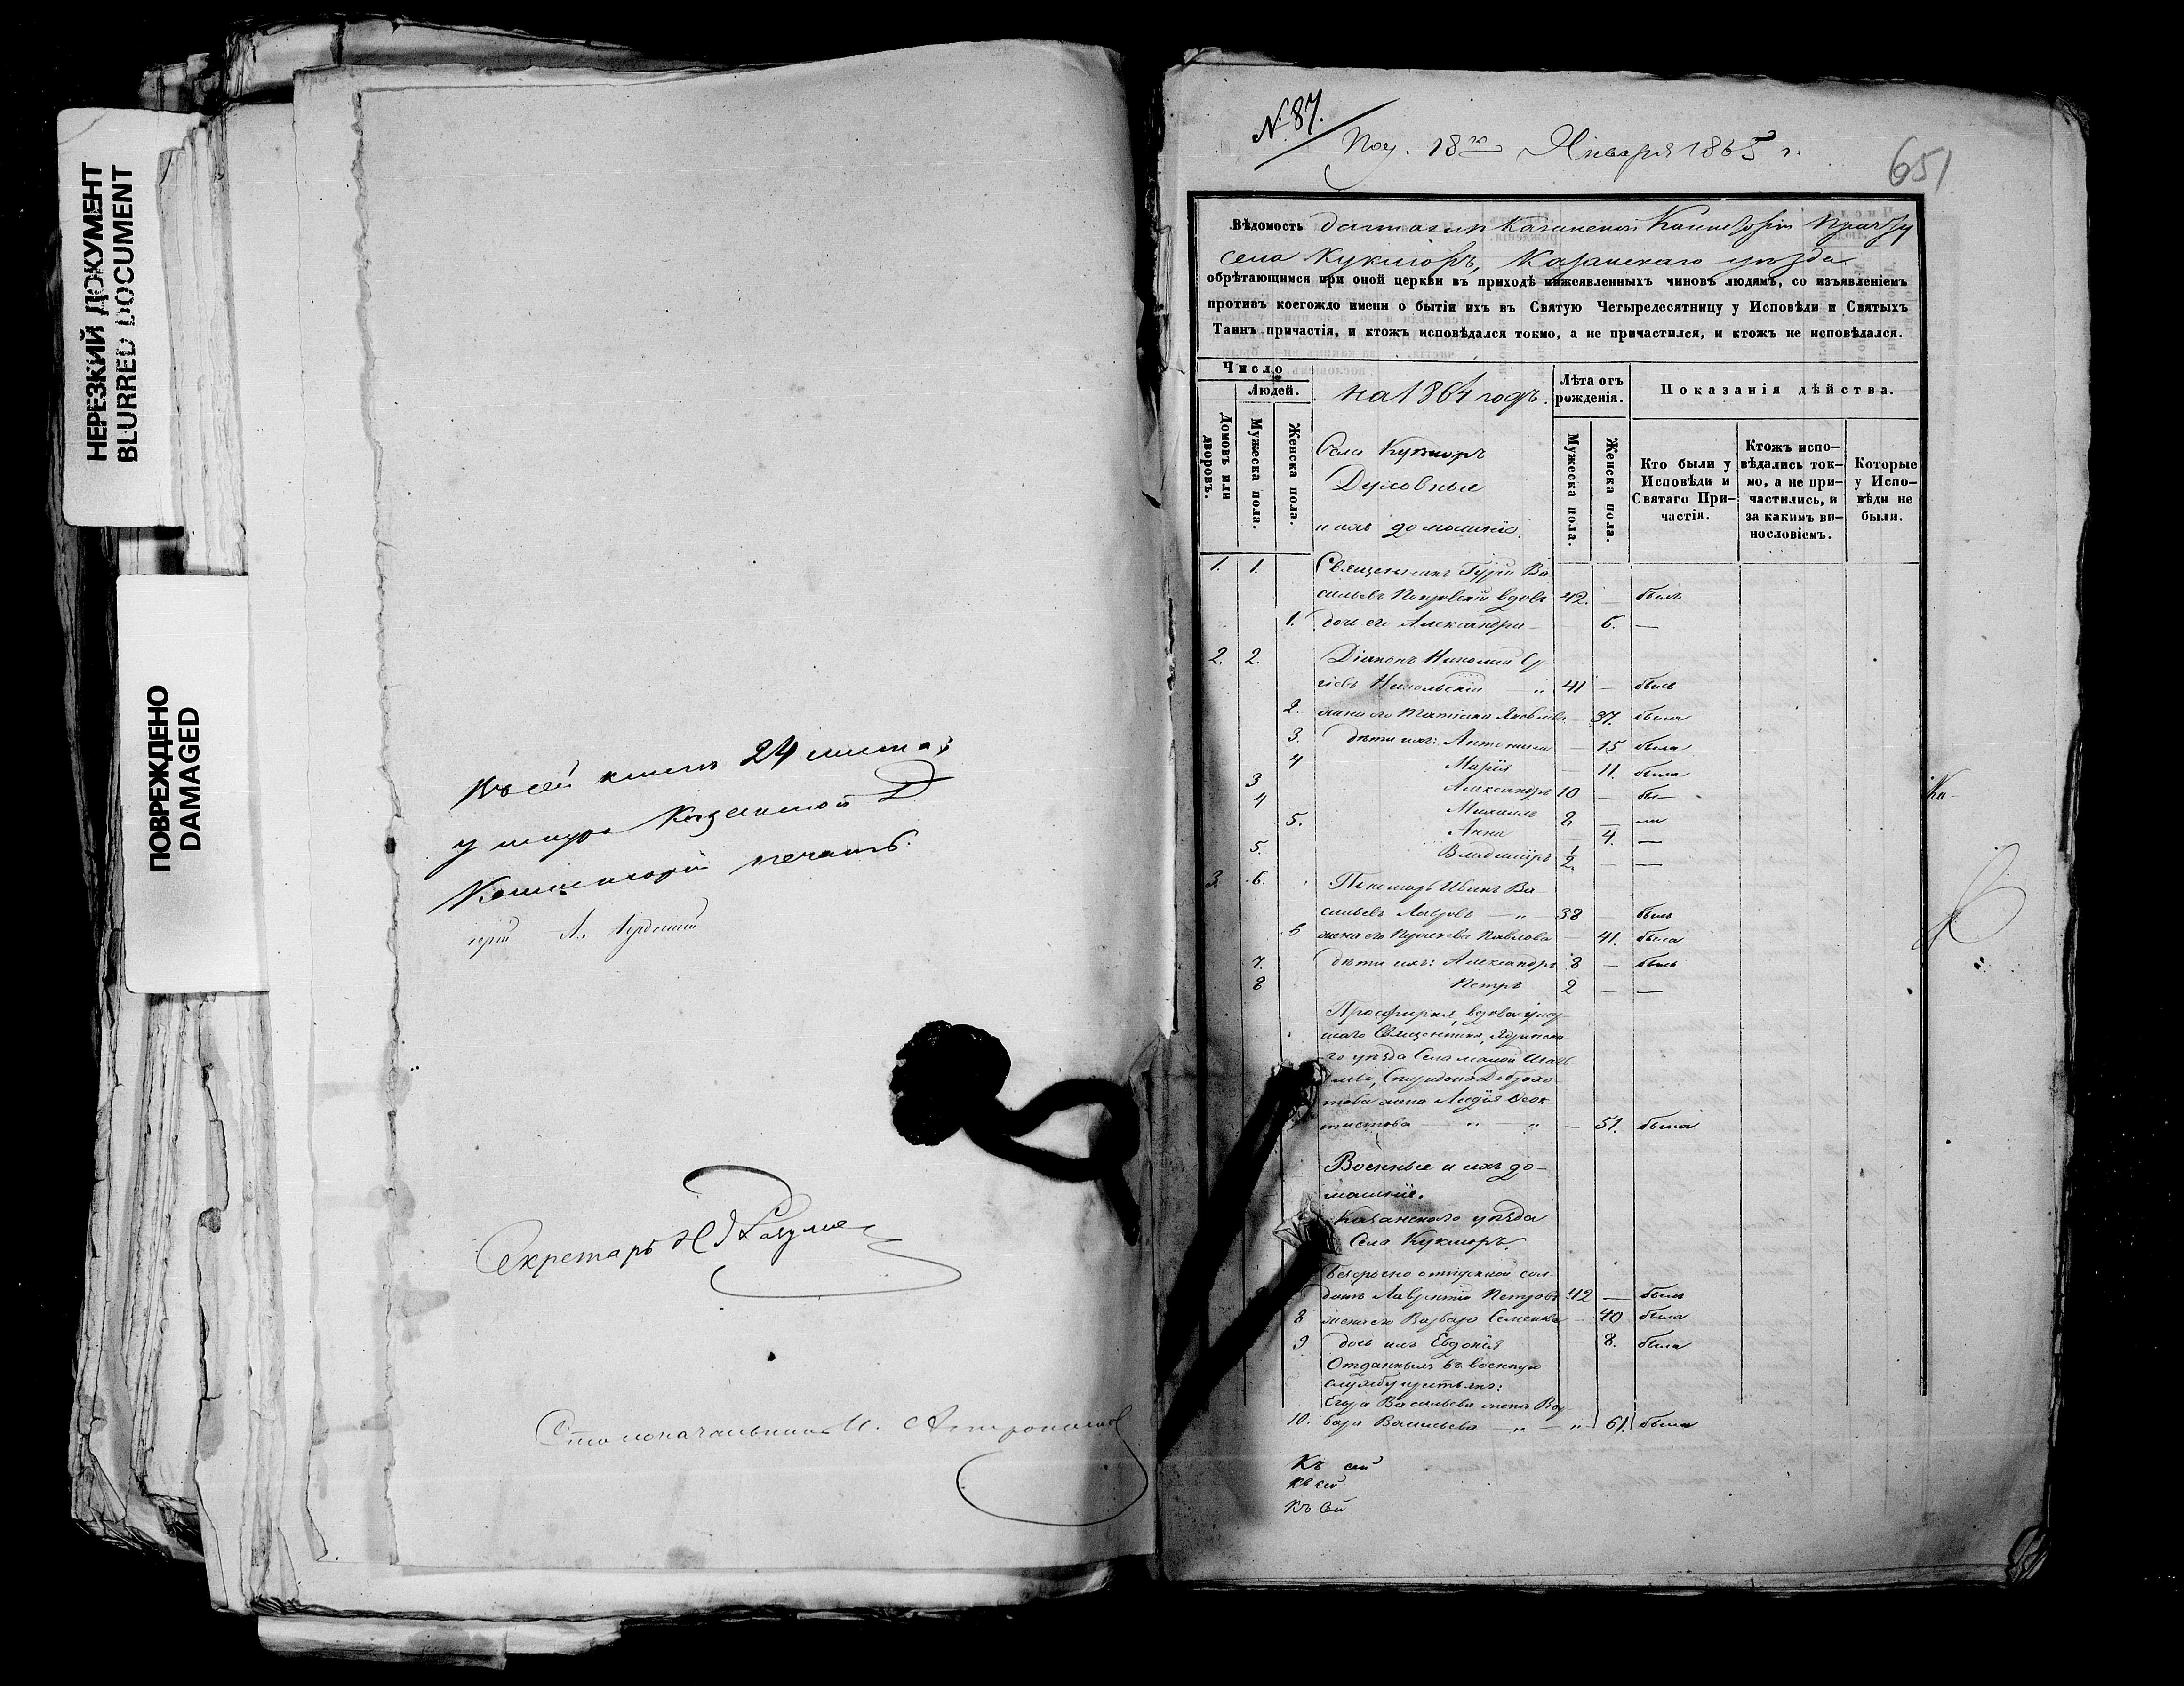 НЕРЕЗКИЙ ДОКУМЕНТ
BLURRED DOCUMENT
ПОВРЕЖДЕНО
DAMAGED
Въ сей книгѣ 24 листа,
у шнура Казанской Д
Консисторіи печать.
Секретарь
Столоначальникъ И.
№ 87.
Пол. 18го Января 1865 г.
651
Вѣдомость данная изъ Казанской Консисторіи Причту
села Кукморъ, Казанскаго уѣзда
обрѣтающимся при оной церкви въ приходѣ нижеявленныхъ чиновъ людямъ, со изъявленіемъ
противъ коегождо имени о бытіи ихъ въ Святую Четыредесятницу у Исповѣди и Святыхъ
Таинъ причастія, и ктожъ исповѣдался токмо, а не причастился, и ктожъ не исповѣдался.
Число
Людей.
Домовъ или дворовъ.
Мужеска пола.
Женска пола.
на 1864 годъ.
Лѣта отъ рожденія.
Мужеска пола.
Женска пола.
Показанія дѣйства.
Кто были у Исповѣди и Святаго При-частія.
Ктожъ испо-вѣдались ток-мо, а не при-частились, и за какимъ ви-нословіемъ.
Которые у Испо-вѣди не были.
Села Кукморъ
Духовные
и ихъ домашніе.
1. 1. Священникъ Гурій Ва
сильевъ Покровскій вдовъ 42. — былъ
1. дочь его Александра — 6. —
2. 2. Діаконъ Николай
Никольскій „ 41 — былъ
2. жена его Татіана Яковлева — 37. была
3. дѣти ихъ: Антонина — 15 была
4 Марія — 11. была
3 Александръ 10 — бы—
4 Михаилъ 8 — ли
5. Анна — 4. —
5. Владиміръ 1/2. — —
3. 6. Пономарь Иванъ Ва
сильевъ Лавровъ — „ — 38 — былъ
6 жена его Павлова — 41. была
7. дѣти ихъ: Александръ 8 — былъ
8 Петръ 2 — —
Просфирня, вдова
шаго Священника, Ядринска
го уѣзда Села малой
Спиридона Доброхо
това жена Лидія Ѳеок
тистова — „ — „ — 51. была
Военные и ихъ до—
машніе.
Казанскаго уѣзда
Села Кукморъ.
Безсрочно отпускной сол
датъ Лаврентій Петровъ 42 — былъ
8 жена его Варвара Семенова — 40 была
9 дочь ихъ Евдокія — 8. была
Отданныхъ въ военную
службу
Егора Васильева жена Вар
10. вара Васильева — „ — „ 61. была
Къ сей
Къ сей
Къ сей
Ка-